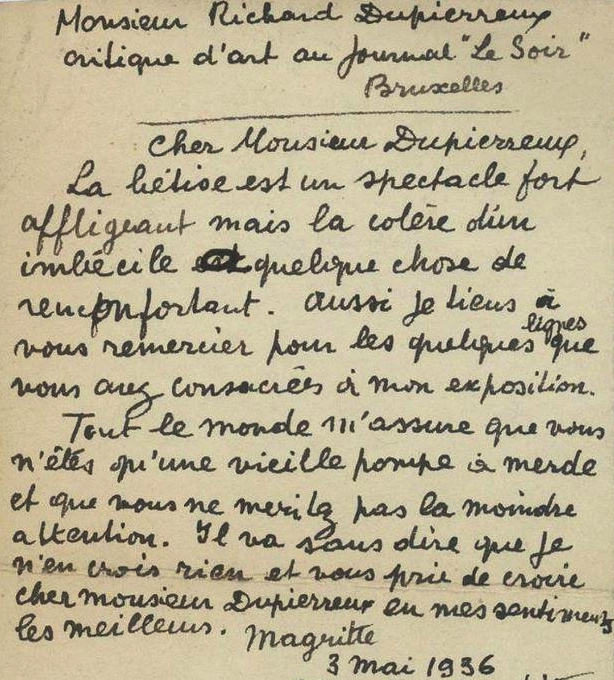 Monsieur Richard Dupierreux
critique d'art au Journal "Le Soir"
Bruxelles
Cher Monsieur Dupierreux,
La bêtise est un spectacle fort
affligeant mais la colère d'un
imbécile est quelque chose de
réconfortant. Aussi je tiens à
vous remercier pour les quelques lignes que
vous avez consacrées à mon exposition.
Tout le monde m'assure que vous
n'êtes qu'une vieille pompe à merde
et que vous ne meritez pas la moindre
attention. Il va sans dire que je
n'en crois rien et vous prie de croire
cher monsieur Dupierreux en mes sentiments
les meilleurs. Magritte
3 mai 1936